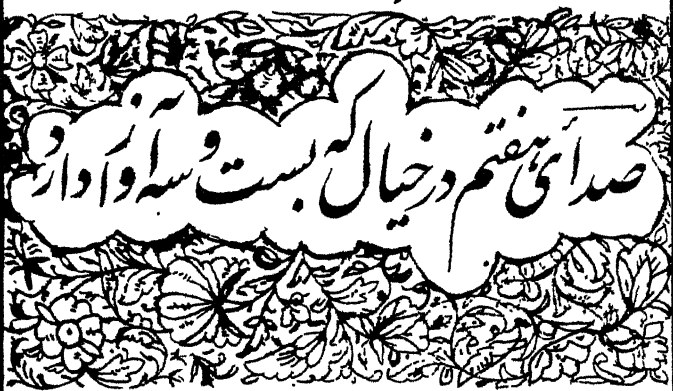 صدائ هفتم در خیال که بست و سه آواز دارد